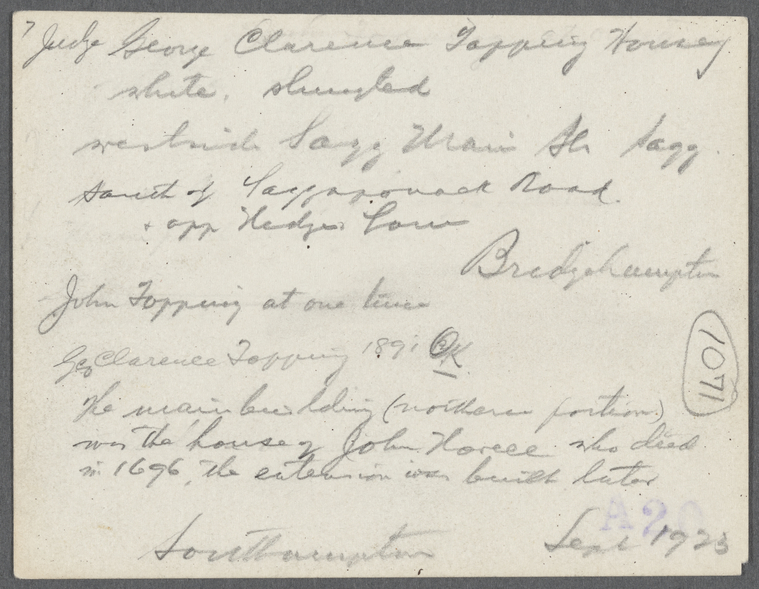 7 Judge George Clarence Topping House
white. shingled
westside Sagg Main St Sagg
south of Sagaponack Road.
+ opp Hedges Lane
Bridgehampton
John Topping at one time
Geo Clarence Topping 1891 OK
1071
The main building (northern portion)
was the house of John who died
in 1696, the extension was built later
A20
Southampton Sept 1923